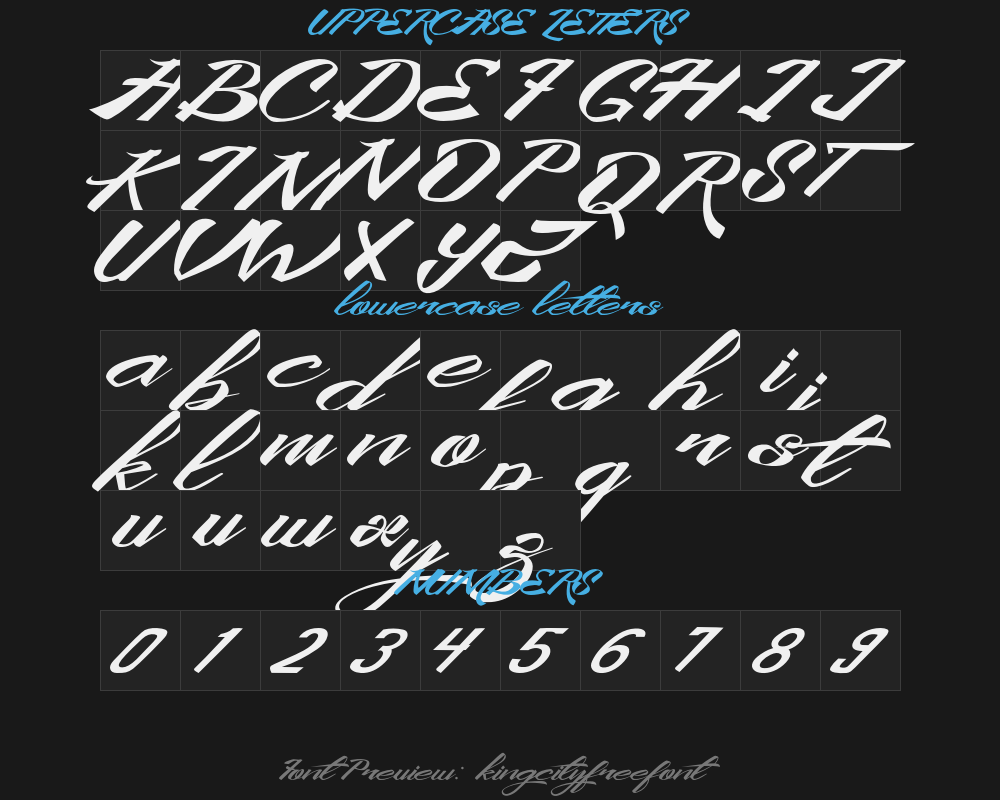 UPPERCASE LETTERS
A B C D E F G H I J
K L M N O P Q R S T
U V W X Y Z
lowercase letters
a b c d e f g h i j
k l m n o p q r s t
u v w x y z
NUMBERS
0 1 2 3 4 5 6 7 8 9
Font Preview: kingcityfreefont